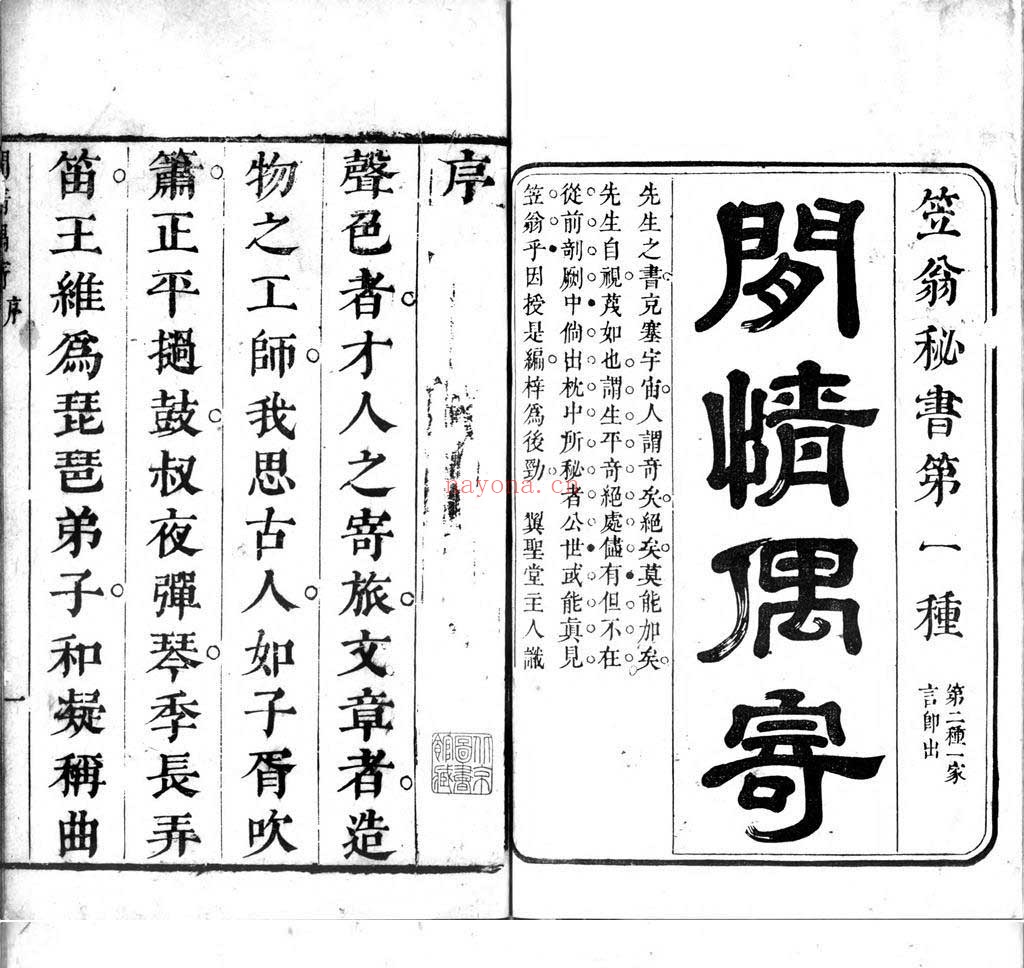 笠翁秘書第一種
第二種一家
言即出
閒情偶寄
先生之書充塞宇宙人謂奇矣絕矣莫能加矣
先生自視蔑如也謂生平奇絕處儘有但不在
從前剞劂中倘出枕中所秘者公世或能眞見
笠翁乎因授是編梓爲後勁 翼聖堂主人識
序
聲色者才人之寄旅文章者造
物之工師我思古人如子胥吹
簫正平撾鼓叔夜彈琴季長弄
笛王維爲琵琶弟子和凝稱曲
閒情偶寄 序
一
nayona.cn